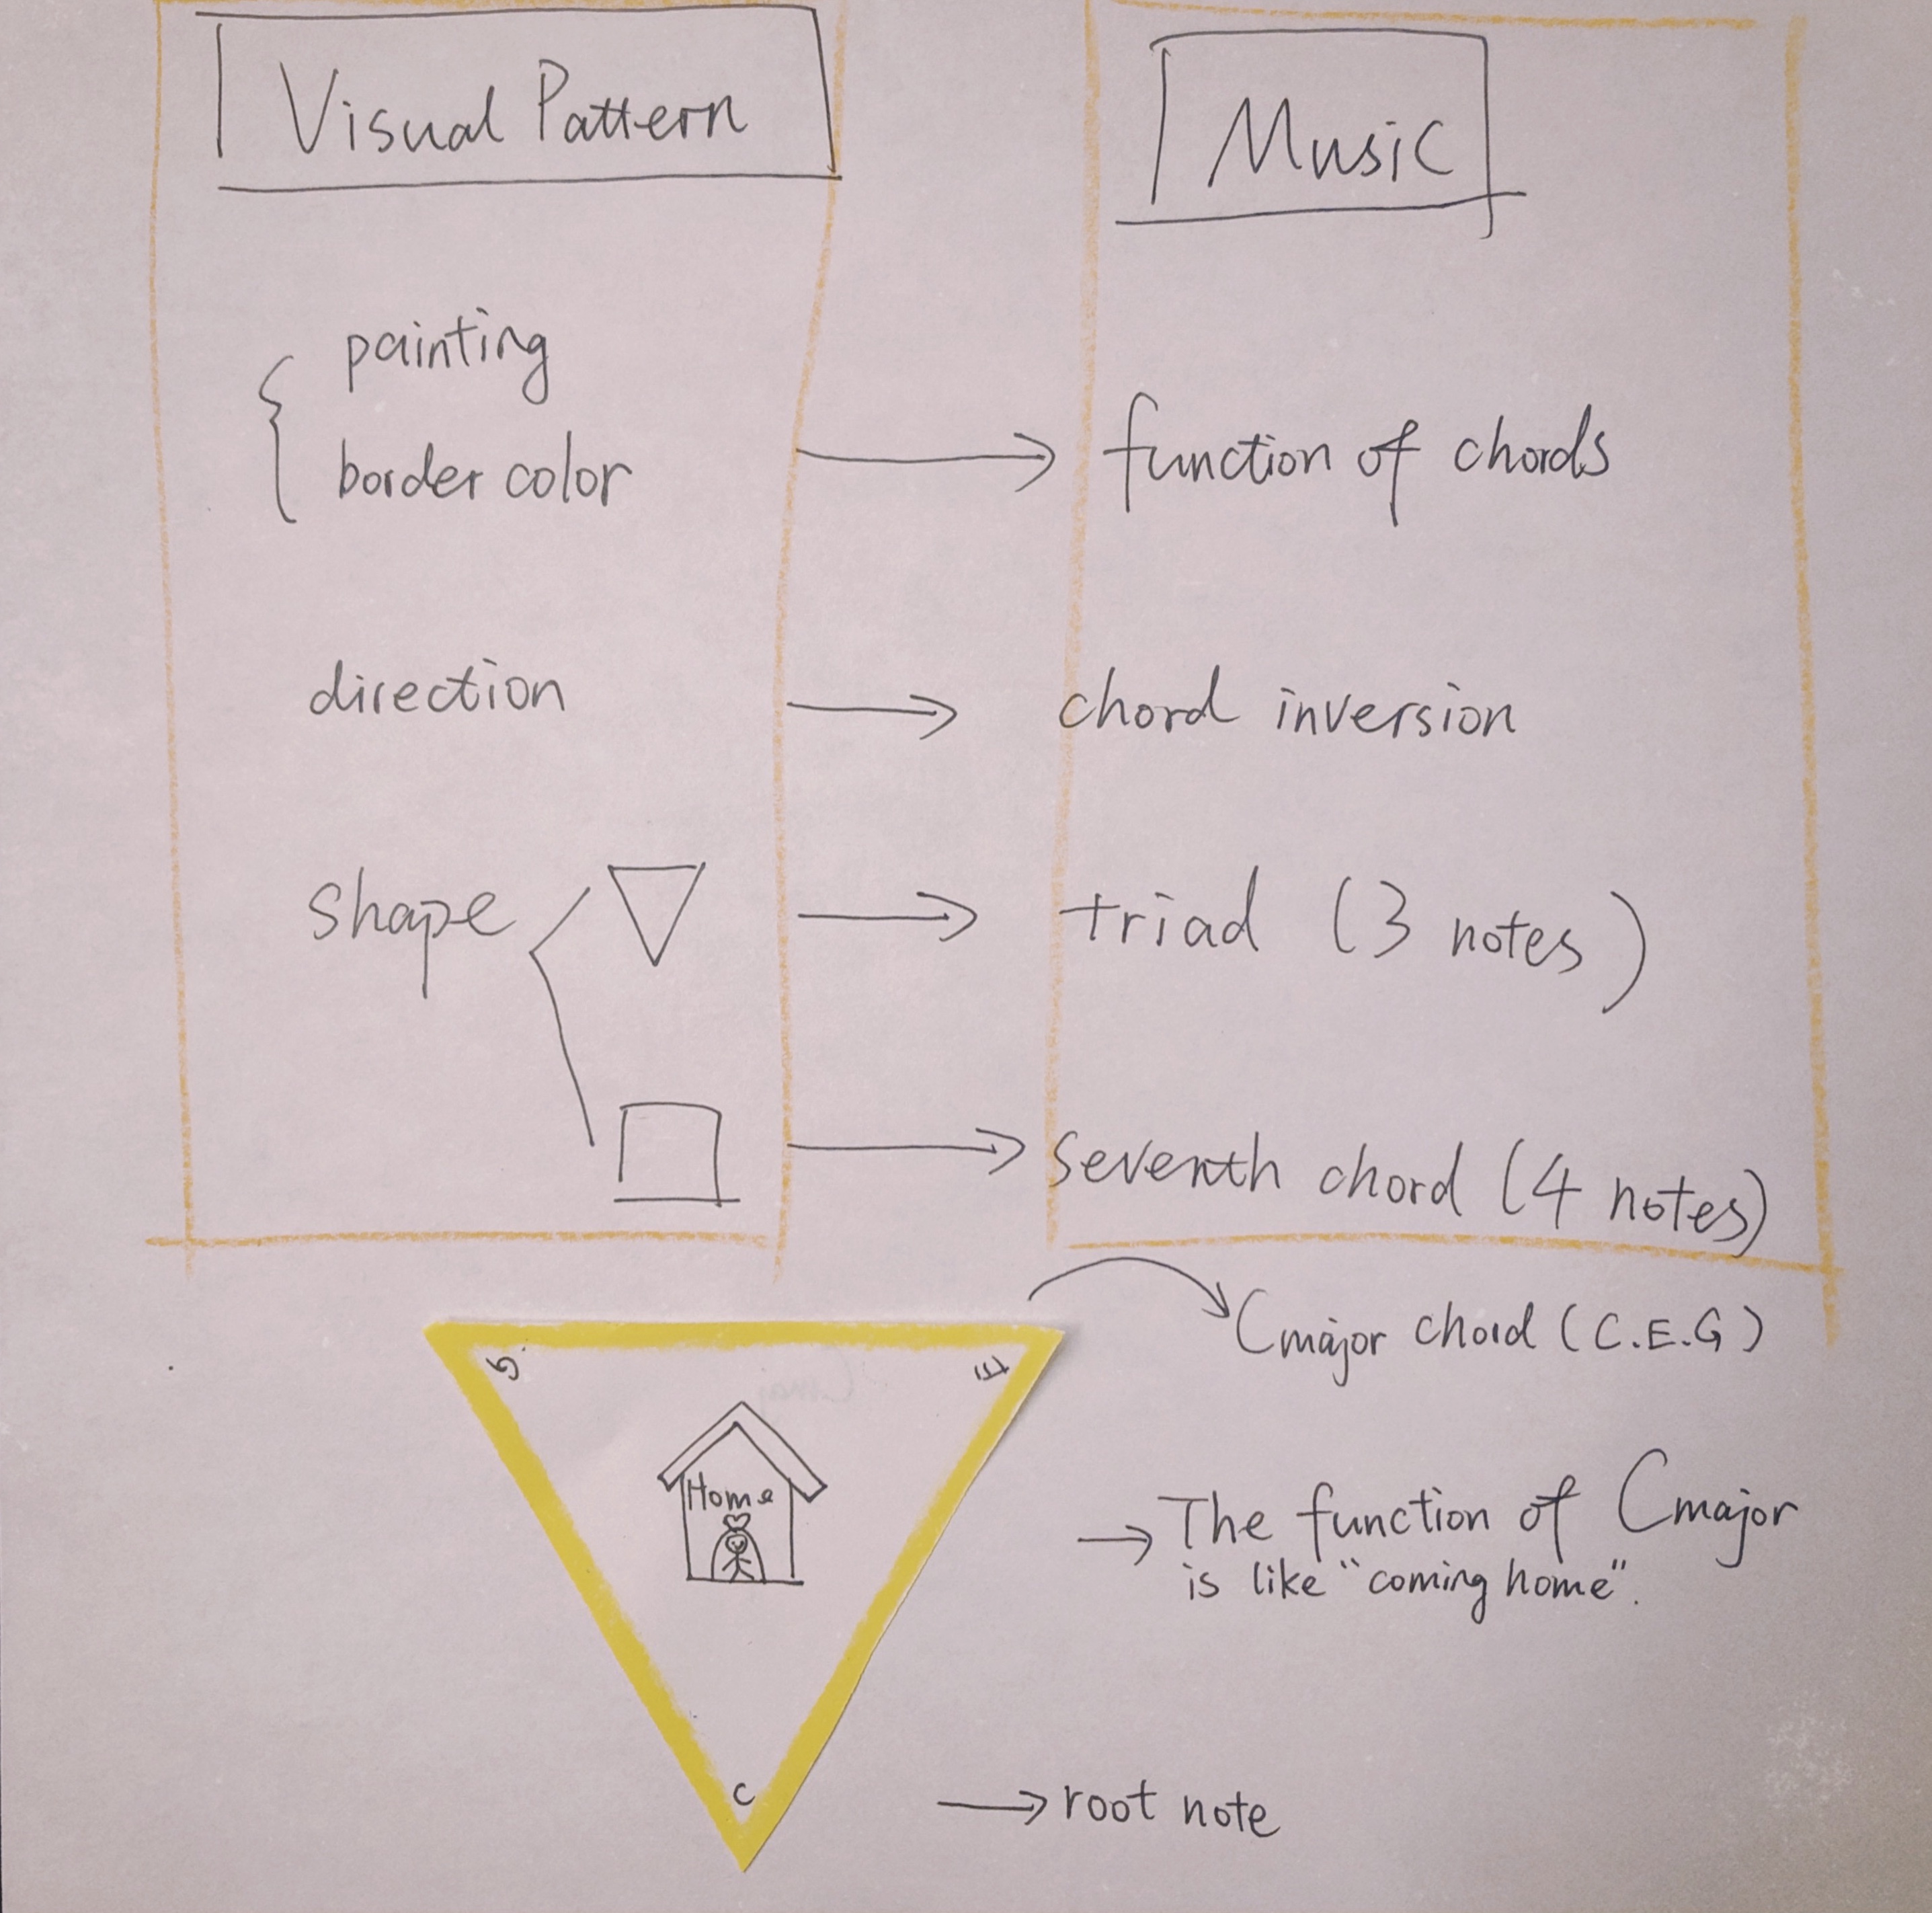 Visual Pattern
Music
painting
border color
function of chords
direction
chord inversion
shape
triad (3 notes)
seventh chord (4 notes)
Cmajor chord (C.E.G)
G
E
Home
The function of Cmajor
is like "coming home".
C
root note